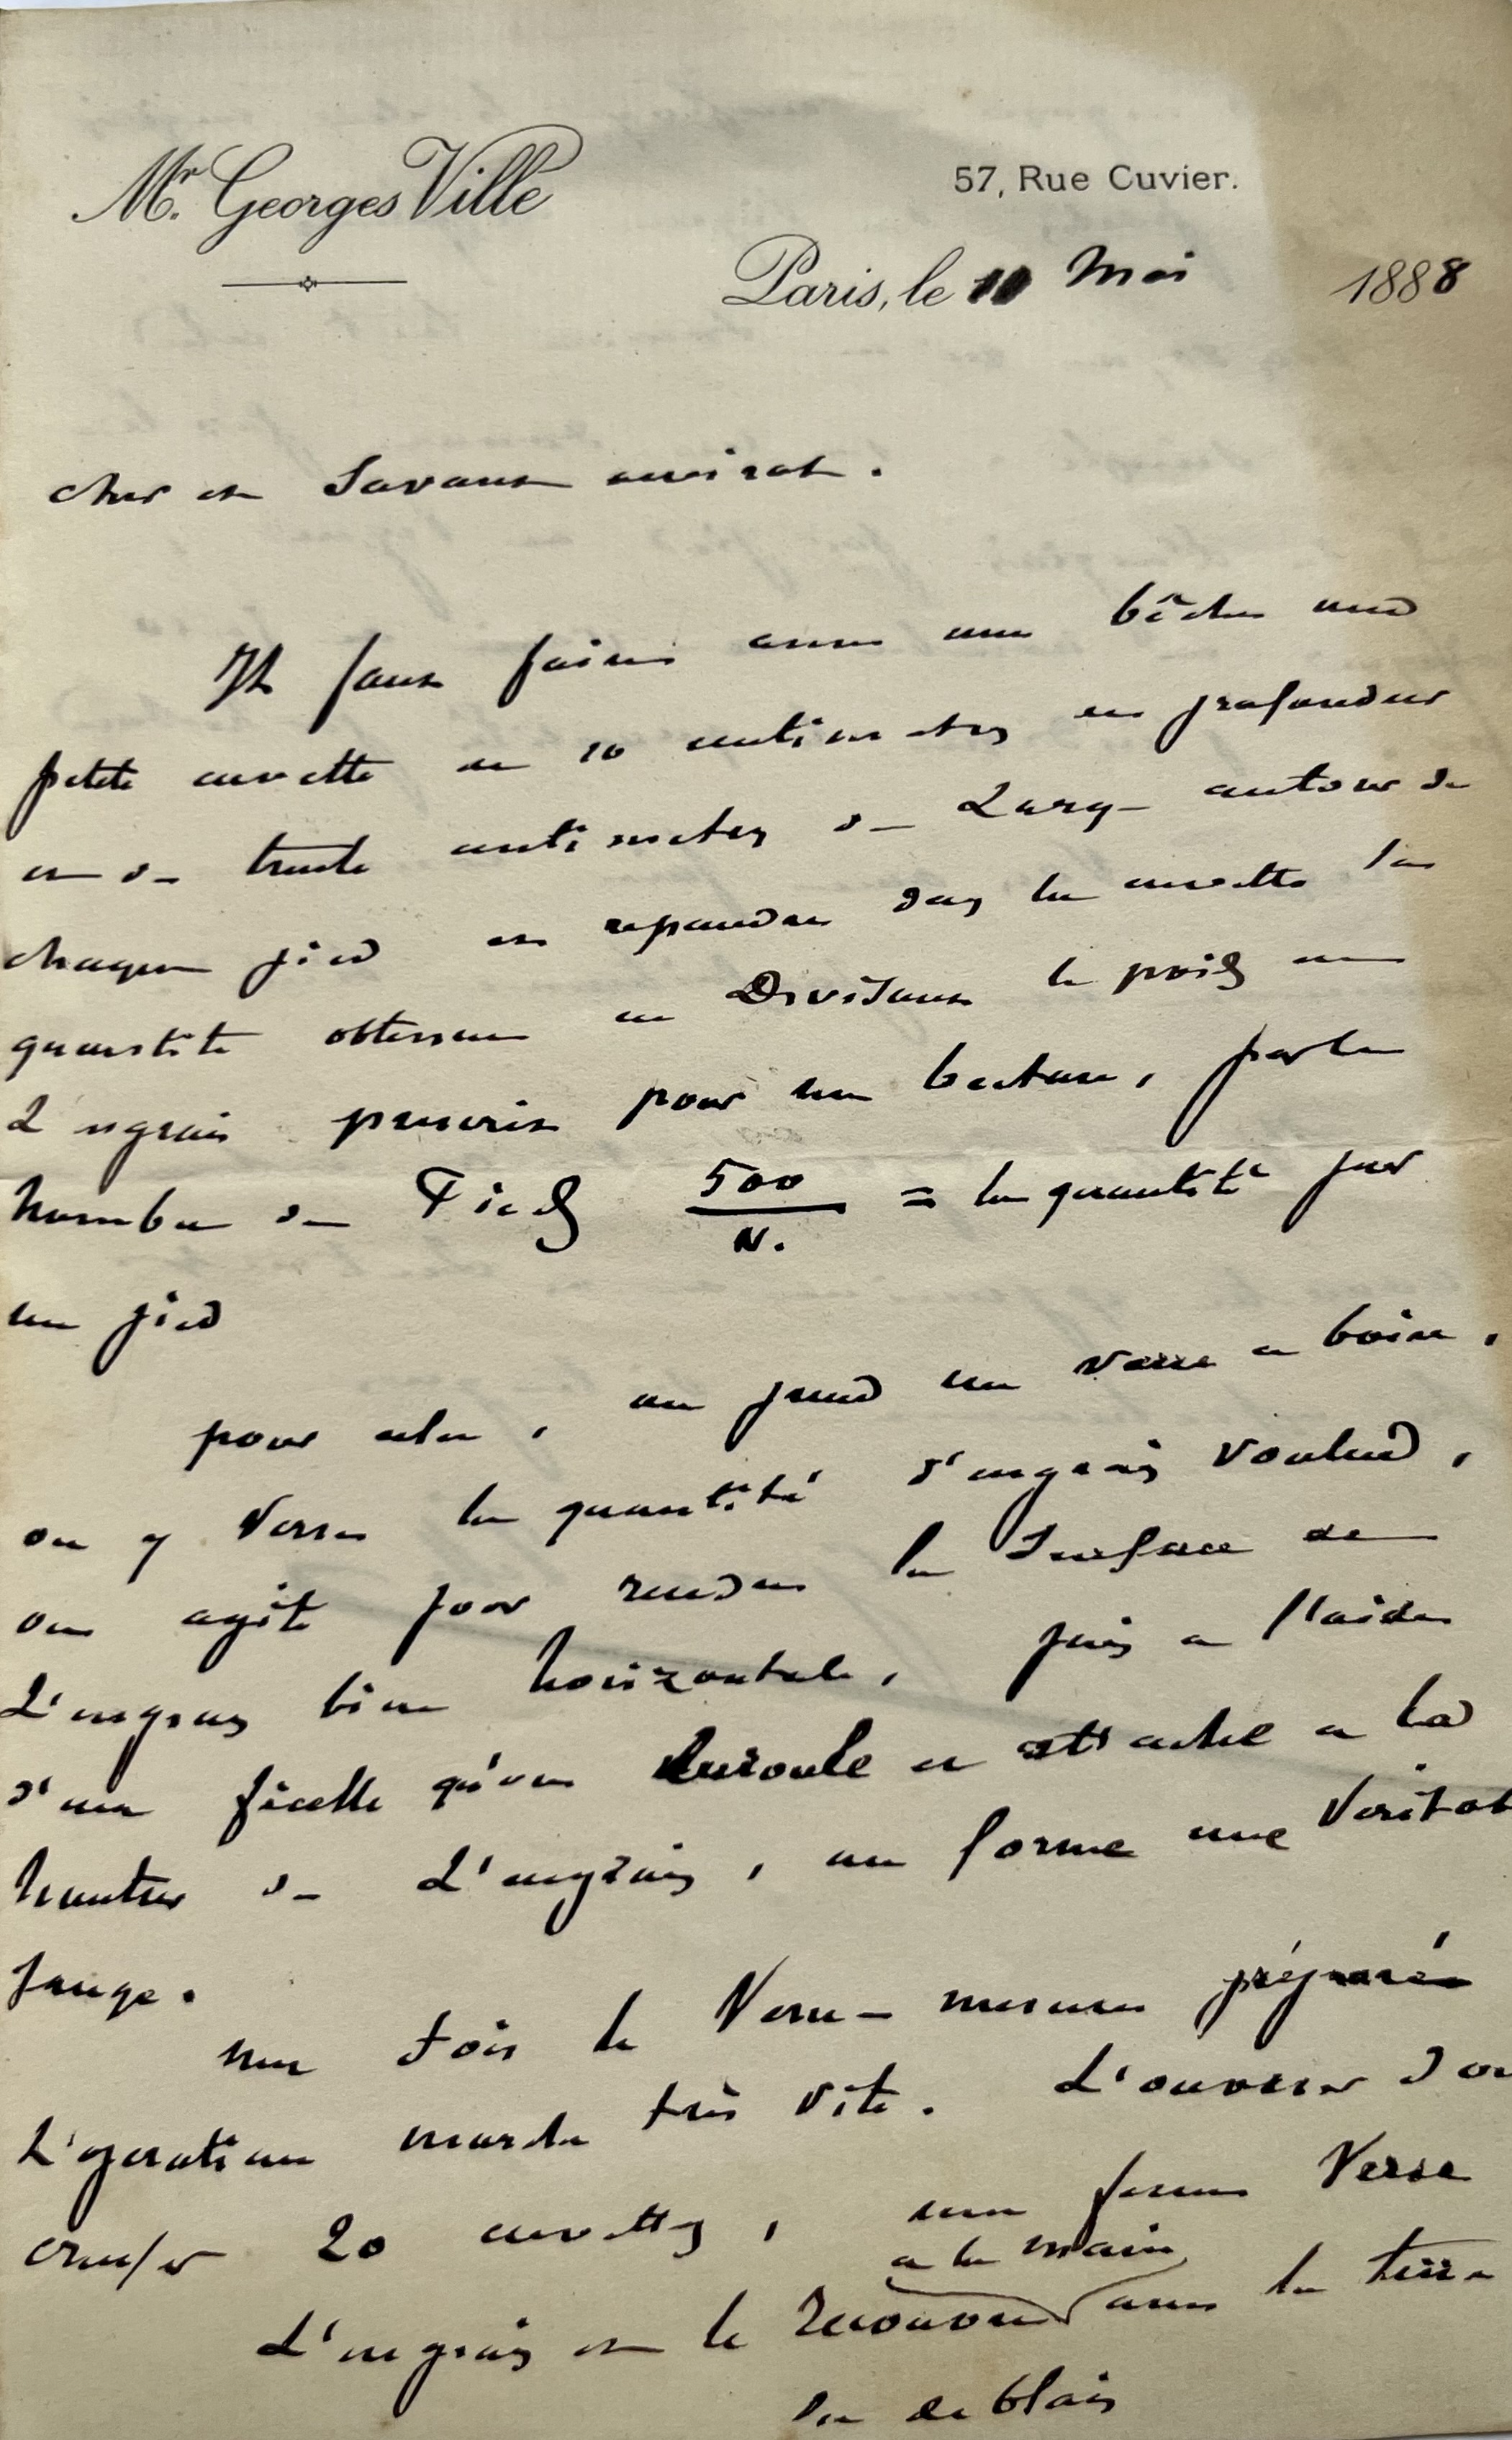 Mr. Georges Ville
57, Rue Cuvier.
Paris, le 10 Mai 1888
Cher et Savant avocat.
Il faut faire avec une bêche une
petite cuvette de 10 centimetres en profondeur
et de trente centimetres de Large autour de
chaque pied et repandre dans la cuvette la
quantite obtenue en Divisant le poids
d'engrais prescrit pour un hectare, par le
Nombre de Pieds 500/N. = la quantité par
un pied
pour cela, on prend un verre a boire,
on y Verse la quantité d'engrais voulue,
on agite pour rendre la Surface de
L'engrais bien horizontale, puis a l'aide
d'une ficelle qu'on Enroule et attache a la
hauteur de L'engrais, on forme une Veritab
Jauge.
une fois le Verre-mesure préparé
L'operation marche très vite. L'ouvrier
creuse 20 cuvettes, une femme Verse
a la main
L'engrais et le recouvre avec la terre
du deblais